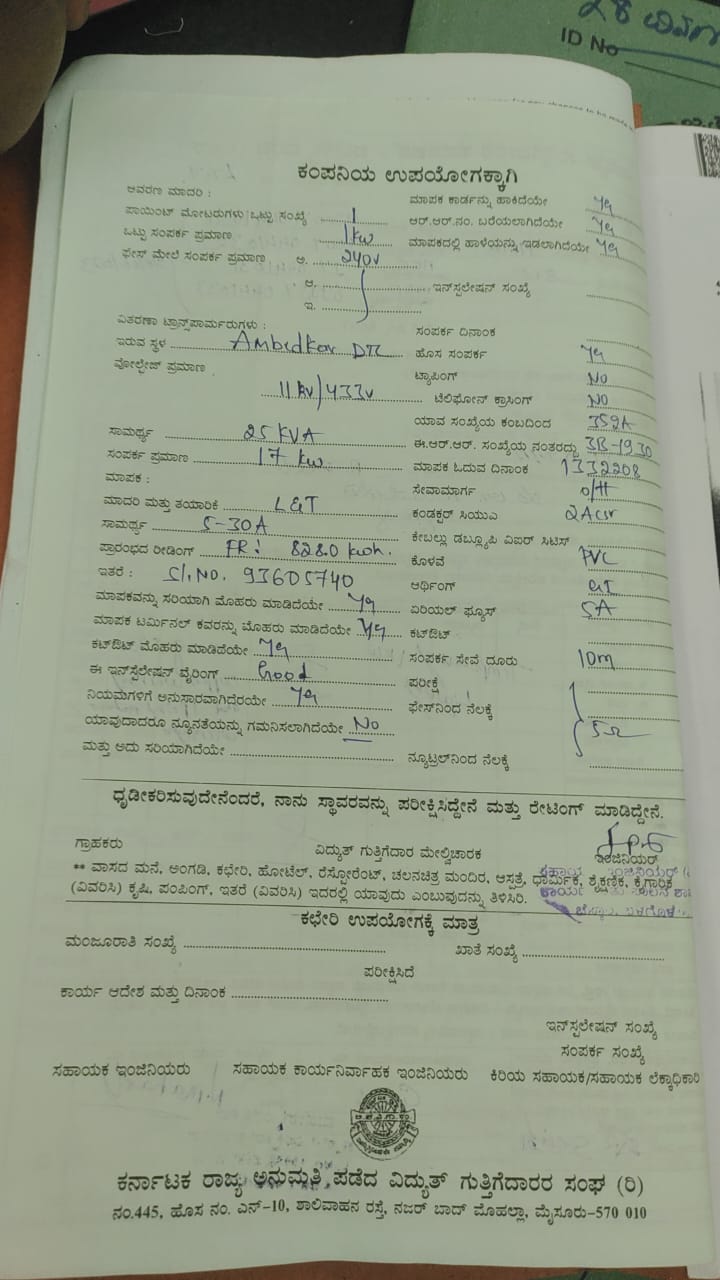 28
ID No
ಕಂಪನಿಯ ಉಪಯೋಗಕ್ಕಾಗಿ
ಆವರಣ ಮಾದರಿ :
ಮಾಪಕ ಕಾರ್ಡನ್ನು ಹಾಕಿದೆಯೇ Yes
ಪಾಯಿಂಟ್ ಮೋಟರುಗಳು ಒಟ್ಟು ಸಂಖ್ಯೆ 1
ಆರ್.ಆರ್.ನಂ. ಬರೆಯಲಾಗಿದೆಯೇ Yes
ಒಟ್ಟು ಸಂಪರ್ಕ ಪ್ರಮಾಣ 1kw
ಮಾಪಕದಲ್ಲಿ ಹಾಳೆಯನ್ನು ಇಡಲಾಗಿದೆಯೇ Yes
ಫೇಸ್ ಮೇಲೆ ಸಂಪರ್ಕ ಪ್ರಮಾಣ ಅ. 240v
ಆ.
ಇನ್‌ಸ್ಪಲೇಷನ್ ಸಂಖ್ಯೆ
ಇ.
ವಿತರಣಾ ಟ್ರಾನ್ಸ್‌ಪಾರ್ಮರುಗಳು :
ಸಂಪರ್ಕ ದಿನಾಂಕ
ಇರುವ ಸ್ಥಳ Ambedkar DTC
ಹೊಸ ಸಂಪರ್ಕ Yes
ವೋಲ್ಟೇಜ್ ಪ್ರಮಾಣ
ಟ್ಯಾಪಿಂಗ್ NO
11 kv/433v
ಟೆಲಿಫೋನ್ ಕ್ರಾಸಿಂಗ್ NO
ಯಾವ ಸಂಖ್ಯೆಯ ಕಂಬದಿಂದ 359A
ಸಾಮರ್ಥ್ಯ 25 KVA
ಈ.ಆರ್.ಆರ್. ಸಂಖ್ಯೆಯ ನಂತರದ್ದು 3B-1930
ಸಂಪರ್ಕ ಪ್ರಮಾಣ 17 kw
ಮಾಪಕ ಓದುವ ದಿನಾಂಕ 1332208
ಮಾಪಕ :
ಸೇವಾಮಾರ್ಗ O/H
ಮಾದರಿ ಮತ್ತು ತಯಾರಿಕೆ L&T
ಕಂಡಕ್ಟರ್ ಸಿಯುವಿ 2Acsr
ಸಾಮರ್ಥ್ಯ 5-30A
ಕೇಬಲ್ಲು ಡಬ್ಲ್ಯೂಪಿ ವಿಐರ್ ಸಿಟಿಸ್
ಪ್ರಾರಂಭದ ರೀಡಿಂಗ್ FR: 828.0 kwh.
ಕೊಳವೆ PVC
ಇತರೆ : Sl.NO. 93605740
ಆರ್ಥಿಂಗ್ GI
ಮಾಪಕವನ್ನು ಸರಿಯಾಗಿ ಮೊಹರು ಮಾಡಿದೆಯೇ Yes
ಏರಿಯಲ್ ಫ್ಯೂಸ್ 5A
ಮಾಪಕ ಟರ್ಮಿನಲ್ ಕವರನ್ನು ಬೊಹರು ಮಾಡಿದೆಯೇ Yes
ಕಟ್‌ಔಟ್
ಕಟ್‌ಔಟ್ ಮೊಹರು ಮಾಡಿದೆಯೇ Yes
ಸಂಪರ್ಕ ಸೇವೆ ದೂರು 10m
ಈ ಇನ್‌ಸ್ಪಲೇಷನ್ ವೈರಿಂಗ್ Good
ಪರೀಕ್ಷೆ
ನಿಯಮಗಳಿಗೆ ಅನುಸಾರವಾಗಿದೆರಯೇ Yes
ಫೇಸ್‌ನಿಂದ ನೆಲಕ್ಕೆ
ಯಾವುದಾದರೂ ನ್ಯೂನತೆಯನ್ನು ಗಮನಿಸಲಾಗಿದೆಯೇ No
5Ω
ಮತ್ತು ಅದು ಸರಿಯಾಗಿದೆಯೇ
ನ್ಯೂಟ್ರಲ್‌ನಿಂದ ನೆಲಕ್ಕೆ
ಧೃಡೀಕರಿಸುವುದೇನೆಂದರೆ, ನಾನು ಸ್ಥಾವರವನ್ನು ಪರೀಕ್ಷಿಸಿದ್ದೇನೆ ಮತ್ತು ರೇಟಿಂಗ್ ಮಾಡಿದ್ದೇನೆ.
ಗ್ರಾಹಕರು
ವಿದ್ಯುತ್ ಗುತ್ತಿಗೆದಾರ ಮೇಲ್ವಿಚಾರಕ
ಇಂಜಿನಿಯರ್
** ವಾಸದ ಮನೆ, ಅಂಗಡಿ, ಕಛೇರಿ, ಹೋಟೆಲ್, ರೆಸ್ಟೋರೆಂಟ್, ಚಲನಚಿತ್ರ ಮಂದಿರ, ಆಸ್ಪತ್ರೆ, ಧಾರ್ಮಿಕ, ಶೈಕ್ಷಣಿಕ, ಕೈಗಾರಿಕೆ
(ವಿವರಿಸಿ) ಕೃಷಿ, ಪಂಪಿಂಗ್, ಇತರೆ (ವಿವರಿಸಿ) ಇದರಲ್ಲಿ ಯಾವುದು ಎಂಬುವುದನ್ನು ತಿಳಿಸಿರಿ.
ಕಛೇರಿ ಉಪಯೋಗಕ್ಕೆ ಮಾತ್ರ
ಮಂಜೂರಾತಿ ಸಂಖ್ಯೆ
ಖಾತೆ ಸಂಖ್ಯೆ
ಪರೀಕ್ಷಿಸಿದೆ
ಕಾರ್ಯ ಆದೇಶ ಮತ್ತು ದಿನಾಂಕ
ಇನ್‌ಸ್ಪಲೇಷನ್ ಸಂಖ್ಯೆ
ಸಂಪರ್ಕ ಸಂಖ್ಯೆ
ಸಹಾಯಕ ಇಂಜಿನಿಯರು
ಸಹಾಯಕ ಕಾರ್ಯನಿರ್ವಾಹಕ ಇಂಜಿನಿಯರು
ಕಿರಿಯ ಸಹಾಯಕ/ಸಹಾಯಕ ಲೆಕ್ಕಾಧಿಕಾರಿ
ಕರ್ನಾಟಕ ರಾಜ್ಯ ಅನುಮತಿ ಪಡೆದ ವಿದ್ಯುತ್ ಗುತ್ತಿಗೆದಾರರ ಸಂಘ (ರಿ)
ನಂ.445, ಹೊಸ ನಂ. ಎನ್-10, ಶಾಲಿವಾಹನ ರಸ್ತೆ, ನಜರ್ ಬಾದ್ ಮೊಹಲ್ಲಾ, ಮೈಸೂರು-570 010